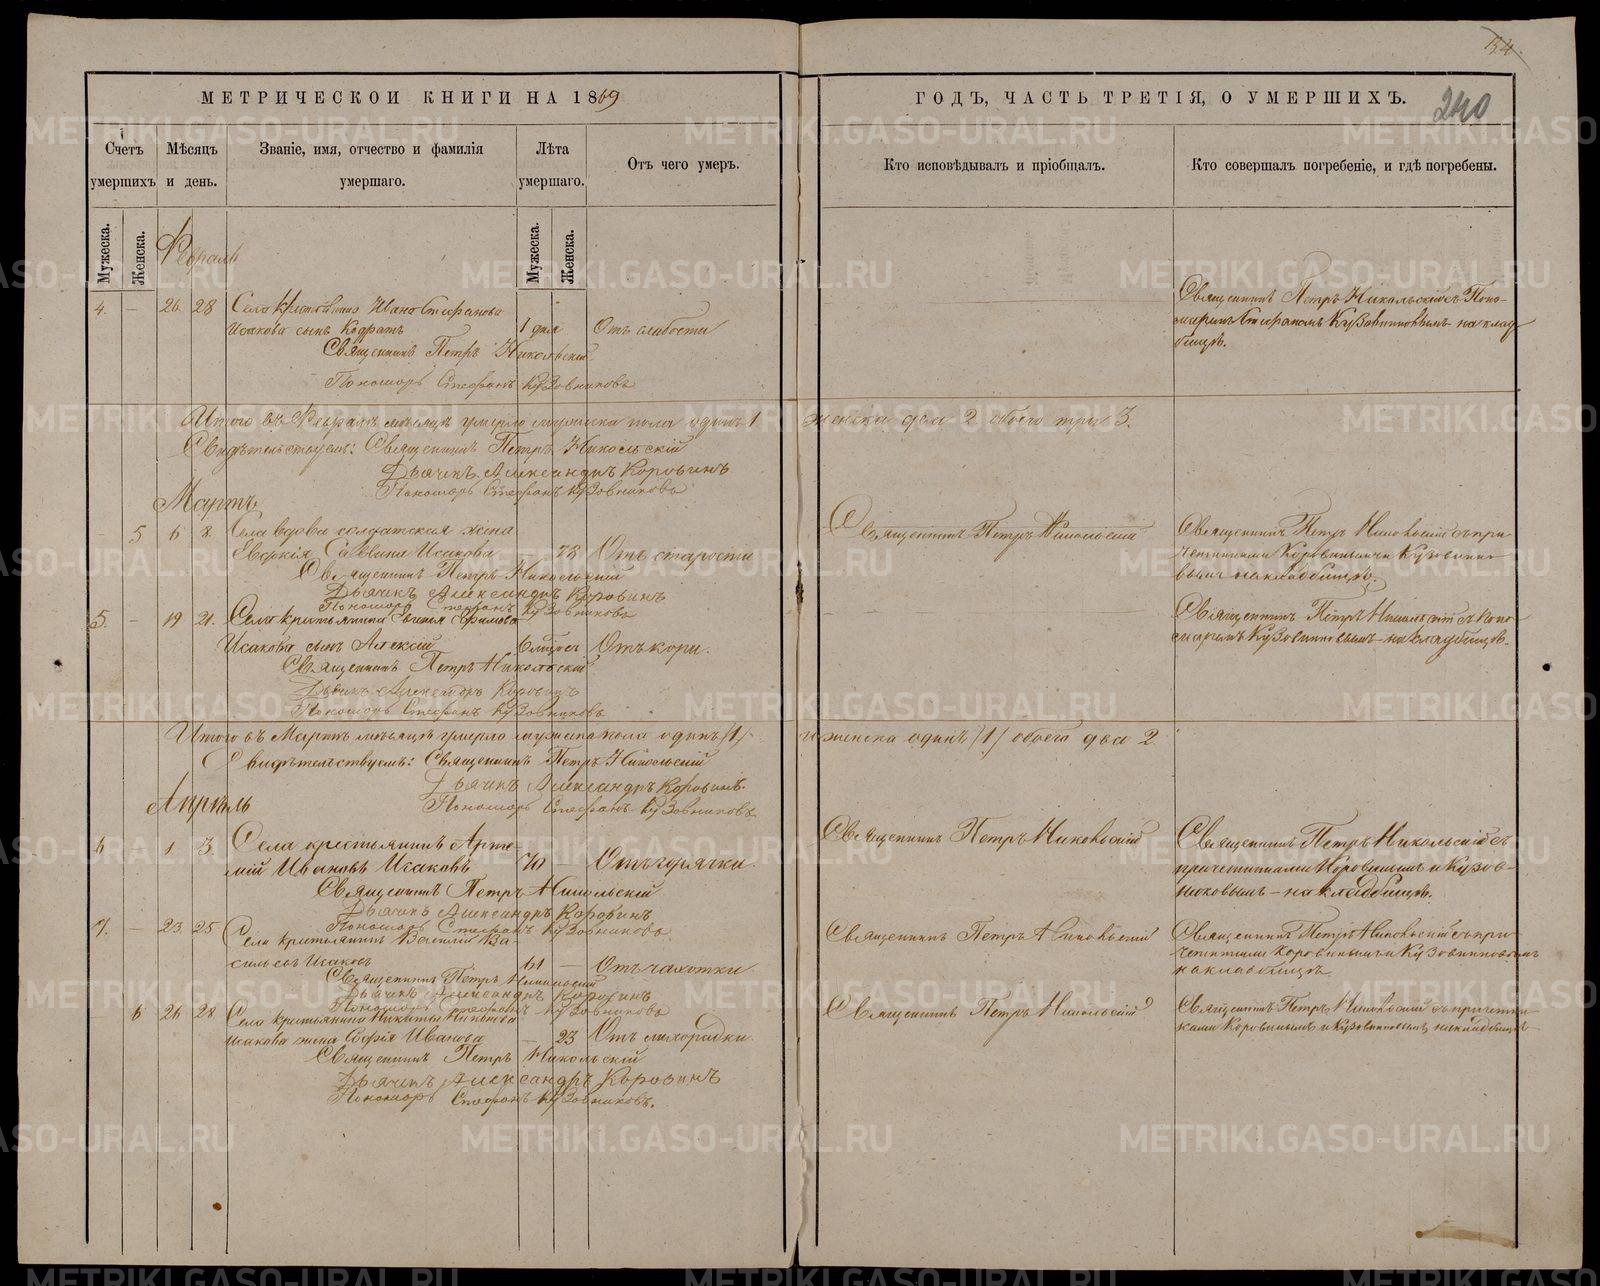 134.
МЕТРИЧЕСКОЙ КНИГИ НА 1869
ГОДЪ, ЧАСТЬ ТРЕТІЯ, О УМЕРШИХЪ.
240
Счетъ умершихъ
Мѣсяцъ и день.
Званіе, имя, отчество и фамилія умершаго.
Лѣта умершаго.
Отъ чего умеръ.
Кто исповѣдывалъ и пріобщалъ.
Кто совершалъ погребеніе, и гдѣ погребены.
Мужеска.
Женска.
Мужеска.
Женска.
Февраль
4. — 26 28 Села Ивана Стефанова
Исакова сынъ Кодратъ 1 дня Отъ слабости
Священникъ Петръ Никольскій
Пономарь Стефанъ Кузовниковъ
Священникъ Петръ Никольскій съ Поно-
маремъ Стефаномъ Кузовниковымъ на клад
бищѣ.
Итого въ Февралѣ мѣсяцѣ умерло мужеска пола одинъ 1 женска два 2 обоего три 3.
Свидѣтельствуемъ: Священникъ Петръ Никольскій
Дьячекъ Александръ Коровинъ
Пономарь Стефанъ Кузовниковъ
Мартъ
5 6 8 Села вдова солдатская жена
Саввина Исакова 73 Отъ старости
Священникъ Петръ Никольскій
Дьячекъ Александръ Коровинъ
Пономарь Стефанъ Кузовниковъ
Священникъ Петръ Никольскій
Священникъ Петръ Никольскій съ при
четниками Коровинымъ и Кузовнико
вымъ на кладбищѣ.
5. — 19 21. Села крестьянина Ефимова
Исакова сынъ Алексій 6 мѣсяс Отъ кори.
Священникъ Петръ Никольскій
Дьячекъ Александръ Коровинъ
Пономарь Стефанъ Кузовниковъ
Священникъ Петръ Никольскій съ Поно
маремъ Кузовниковымъ на кладбищѣ.
Итого въ Мартѣ мѣсяцѣ умерло мужеска пола одинъ /1/ и женска одинъ /1/ обоего два 2
Свидѣтельствуемъ: Священникъ Петръ Никольскій
Дьячекъ Александръ Коровинъ.
Пономарь Стефанъ Кузовниковъ
Апрѣль
6 1 3 Села крестьянинъ Арте-
мій Ивановъ Исаковъ 70 — Отъ горячки
Священникъ Петръ Никольскій
Дьячекъ Александръ Коровинъ
Пономарь Стефанъ Кузовниковъ
Священникъ Петръ Никольскій
Священникъ Петръ Никольскій съ
причетниками Коровинымъ и Кузов-
никовымъ — на кладбищѣ.
7. — 23 25 Села крестьянинъ Василій Ва-
сильевъ Исаковъ 61 — Отъ чахотки
Священникъ Петръ Никольскій
Дьячекъ Александръ Коровинъ
Пономарь Стефанъ Кузовниковъ
Священникъ Петръ Никольскій
Священникъ Петръ Никольскій съ при
четниками Коровинымъ и Кузовниковымъ
на кладбищѣ
6 26 28 Села крестьянина Никиты
Исакова жена Софія Иванова — 23 Отъ лихорадки
Священникъ Петръ Никольскій
Дьячекъ Александръ Коровинъ
Пономарь Стефанъ Кузовниковъ.
Священникъ Петръ Никольскій
Священникъ Петръ Никольскій съ причетни
ками Коровинымъ и Кузовниковымъ на кладбищѣ
METRIKI.GASO-URAL.RU